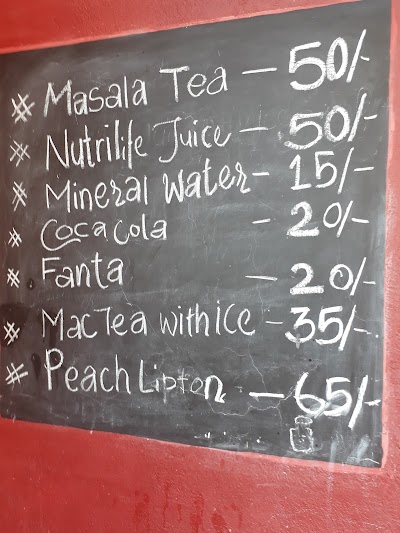 # Masala Tea - 50/-
# Nutrilife Juice - 50/-
# Mineral Water - 15/-
# Coca Cola - 20/-
# Fanta - 20/-
# Mac Tea with ice - 35/-
# Peach Lipton - 65/-